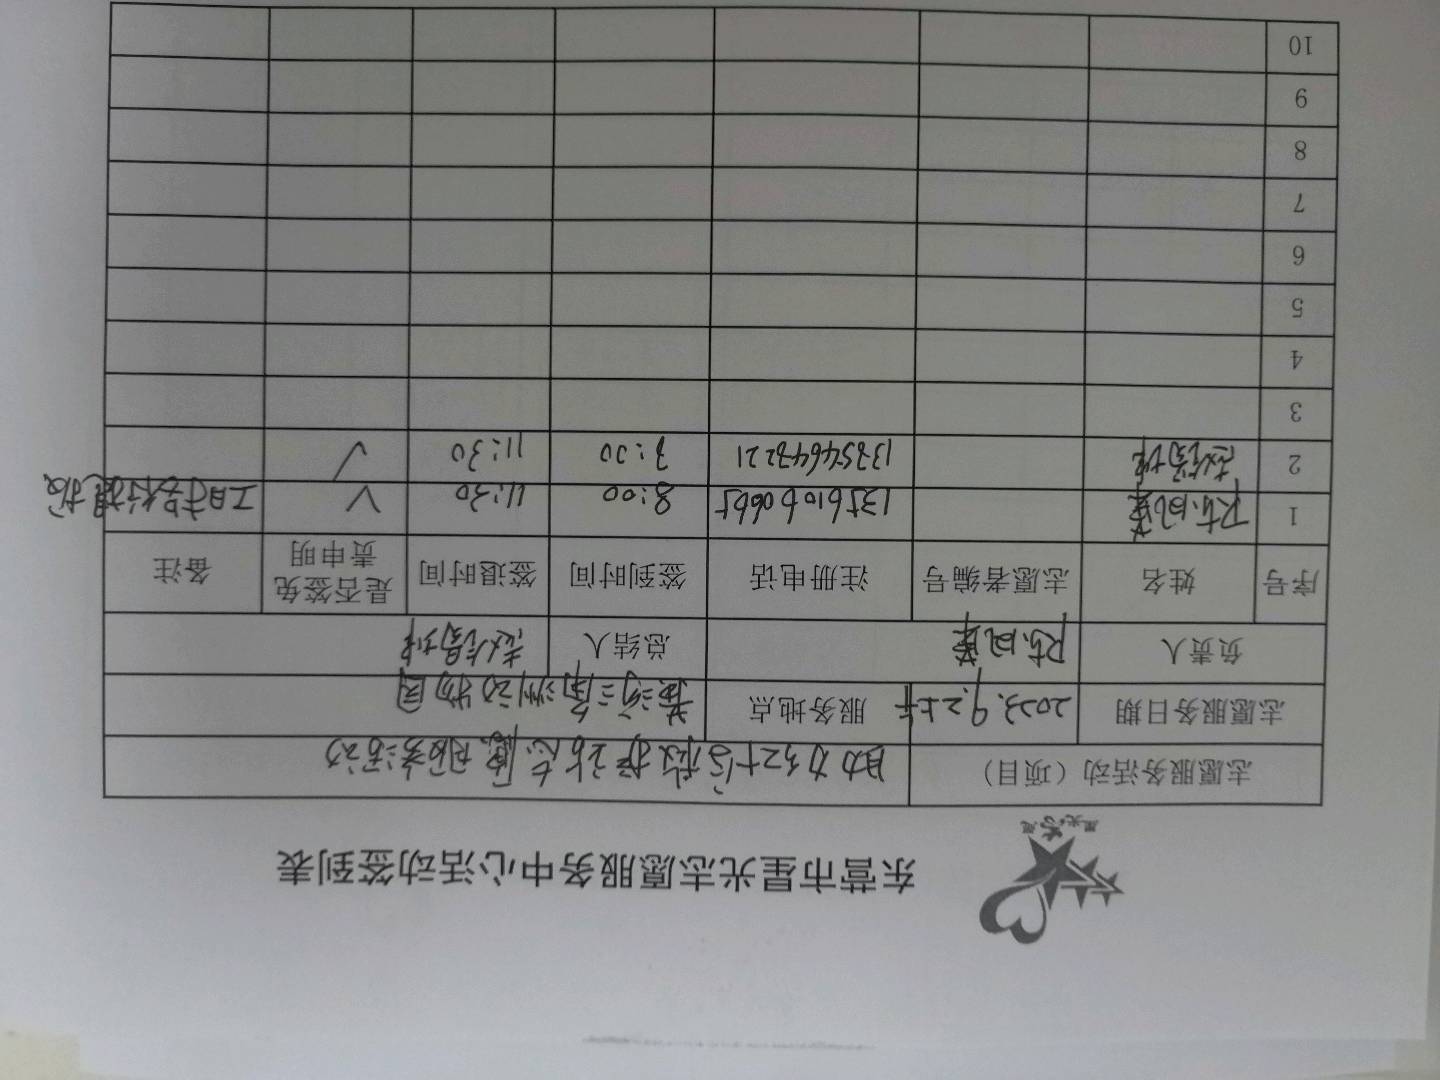 东营市星光志愿服务中心活动签到表
志愿服务活动（项目） 助力红十字救护站志愿服务活动
志愿服务日期 2023.9.2上午 服务地点 黄河三角洲动物园
负责人 陈凤华 总结人
序号 姓名 志愿者编号 注册电话 签到时间 签退时间 是否签免责申明 备注
1 陈凤华 13561060665 8:00 11:30 √
2 13254643221 8:00 11:30 √
3
4
5
6
7
8
9
10